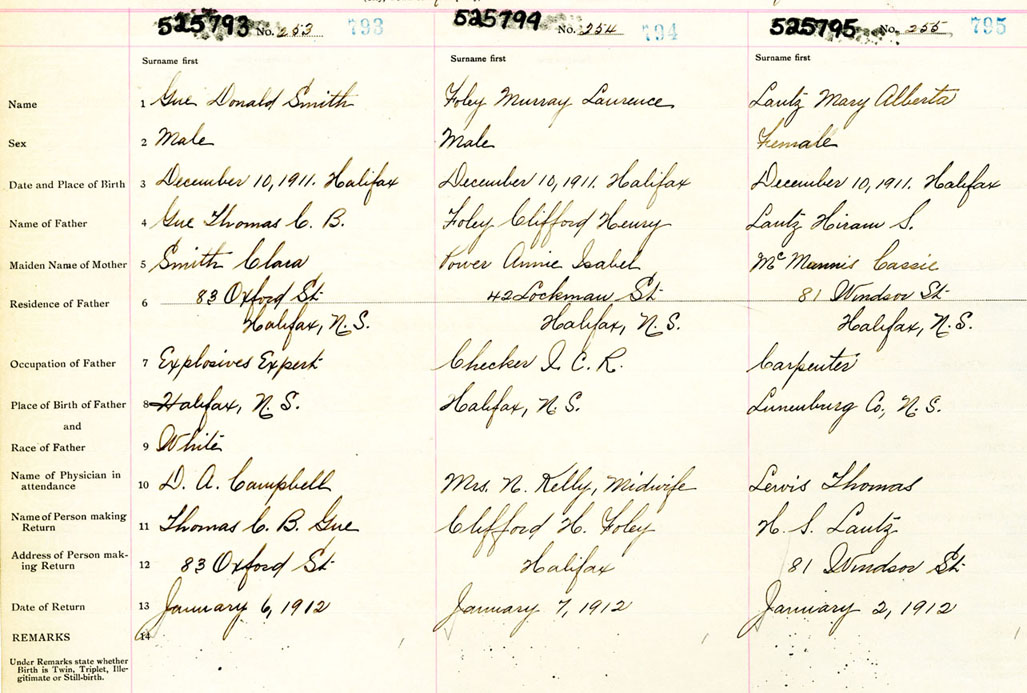 525793 No. 253 793 525794 No. 254 794 525795 No. 255 795
Surname first Surname first Surname first
Name 1 Gue Donald Smith Foley Murray Laurence Lantz Mary Alberta
Sex 2 Male Male Female
Date and Place of Birth 3 December 10, 1911. Halifax December 10, 1911. Halifax December 10, 1911. Halifax
Name of Father 4 Gue Thomas C. B. Foley Clifford Henry Lantz Hiram S.
Maiden Name of Mother 5 Smith Clara Power Annie Isabel McMannis Cassie
Residence of Father 6 83 Oxford St. 42 Lockman St. 81 Windsor St.
Halifax, N.S. Halifax, N.S. Halifax, N.S.
Occupation of Father 7 Explosives Expert Checker I. C. R. Carpenter
Place of Birth of Father 8 Halifax, N.S. Halifax, N.S. Lunenburg Co, N.S.
and
Race of Father 9 White
Name of Physician in
attendance 10 D. A. Campbell Mrs. N. Kelly, Midwife Lewis Thomas
Name of Person making
Return 11 Thomas C. B. Gue Clifford H. Foley H. S. Lantz
Address of Person mak-
ing Return 12 83 Oxford St. Halifax 81 Windsor St.
Date of Return 13 January 6, 1912 January 7, 1912 January 2, 1912
REMARKS 14
Under Remarks state whether
Birth is Twin, Triplet, Ille-
gitimate or Still-birth.